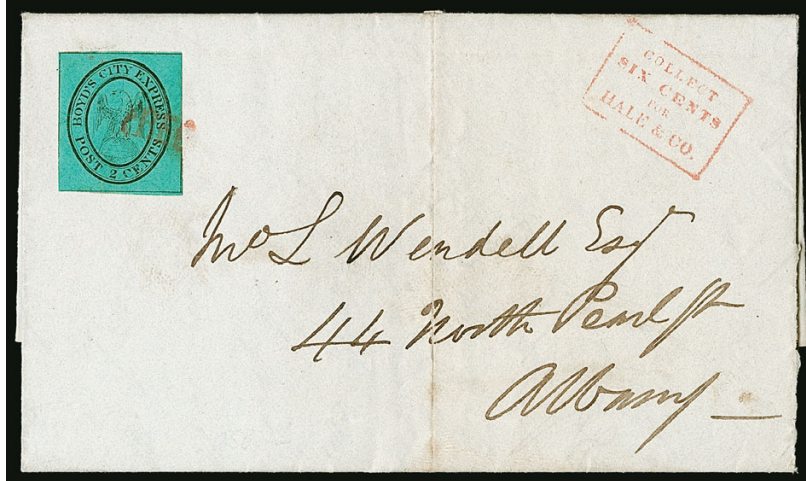 BOYD'S CITY EXPRESS
POST 2 CENTS
COLLECT
SIX CENTS
FOR
HALE & CO.
Jno L Wendell Esqr
44 North Pearl St
Albany